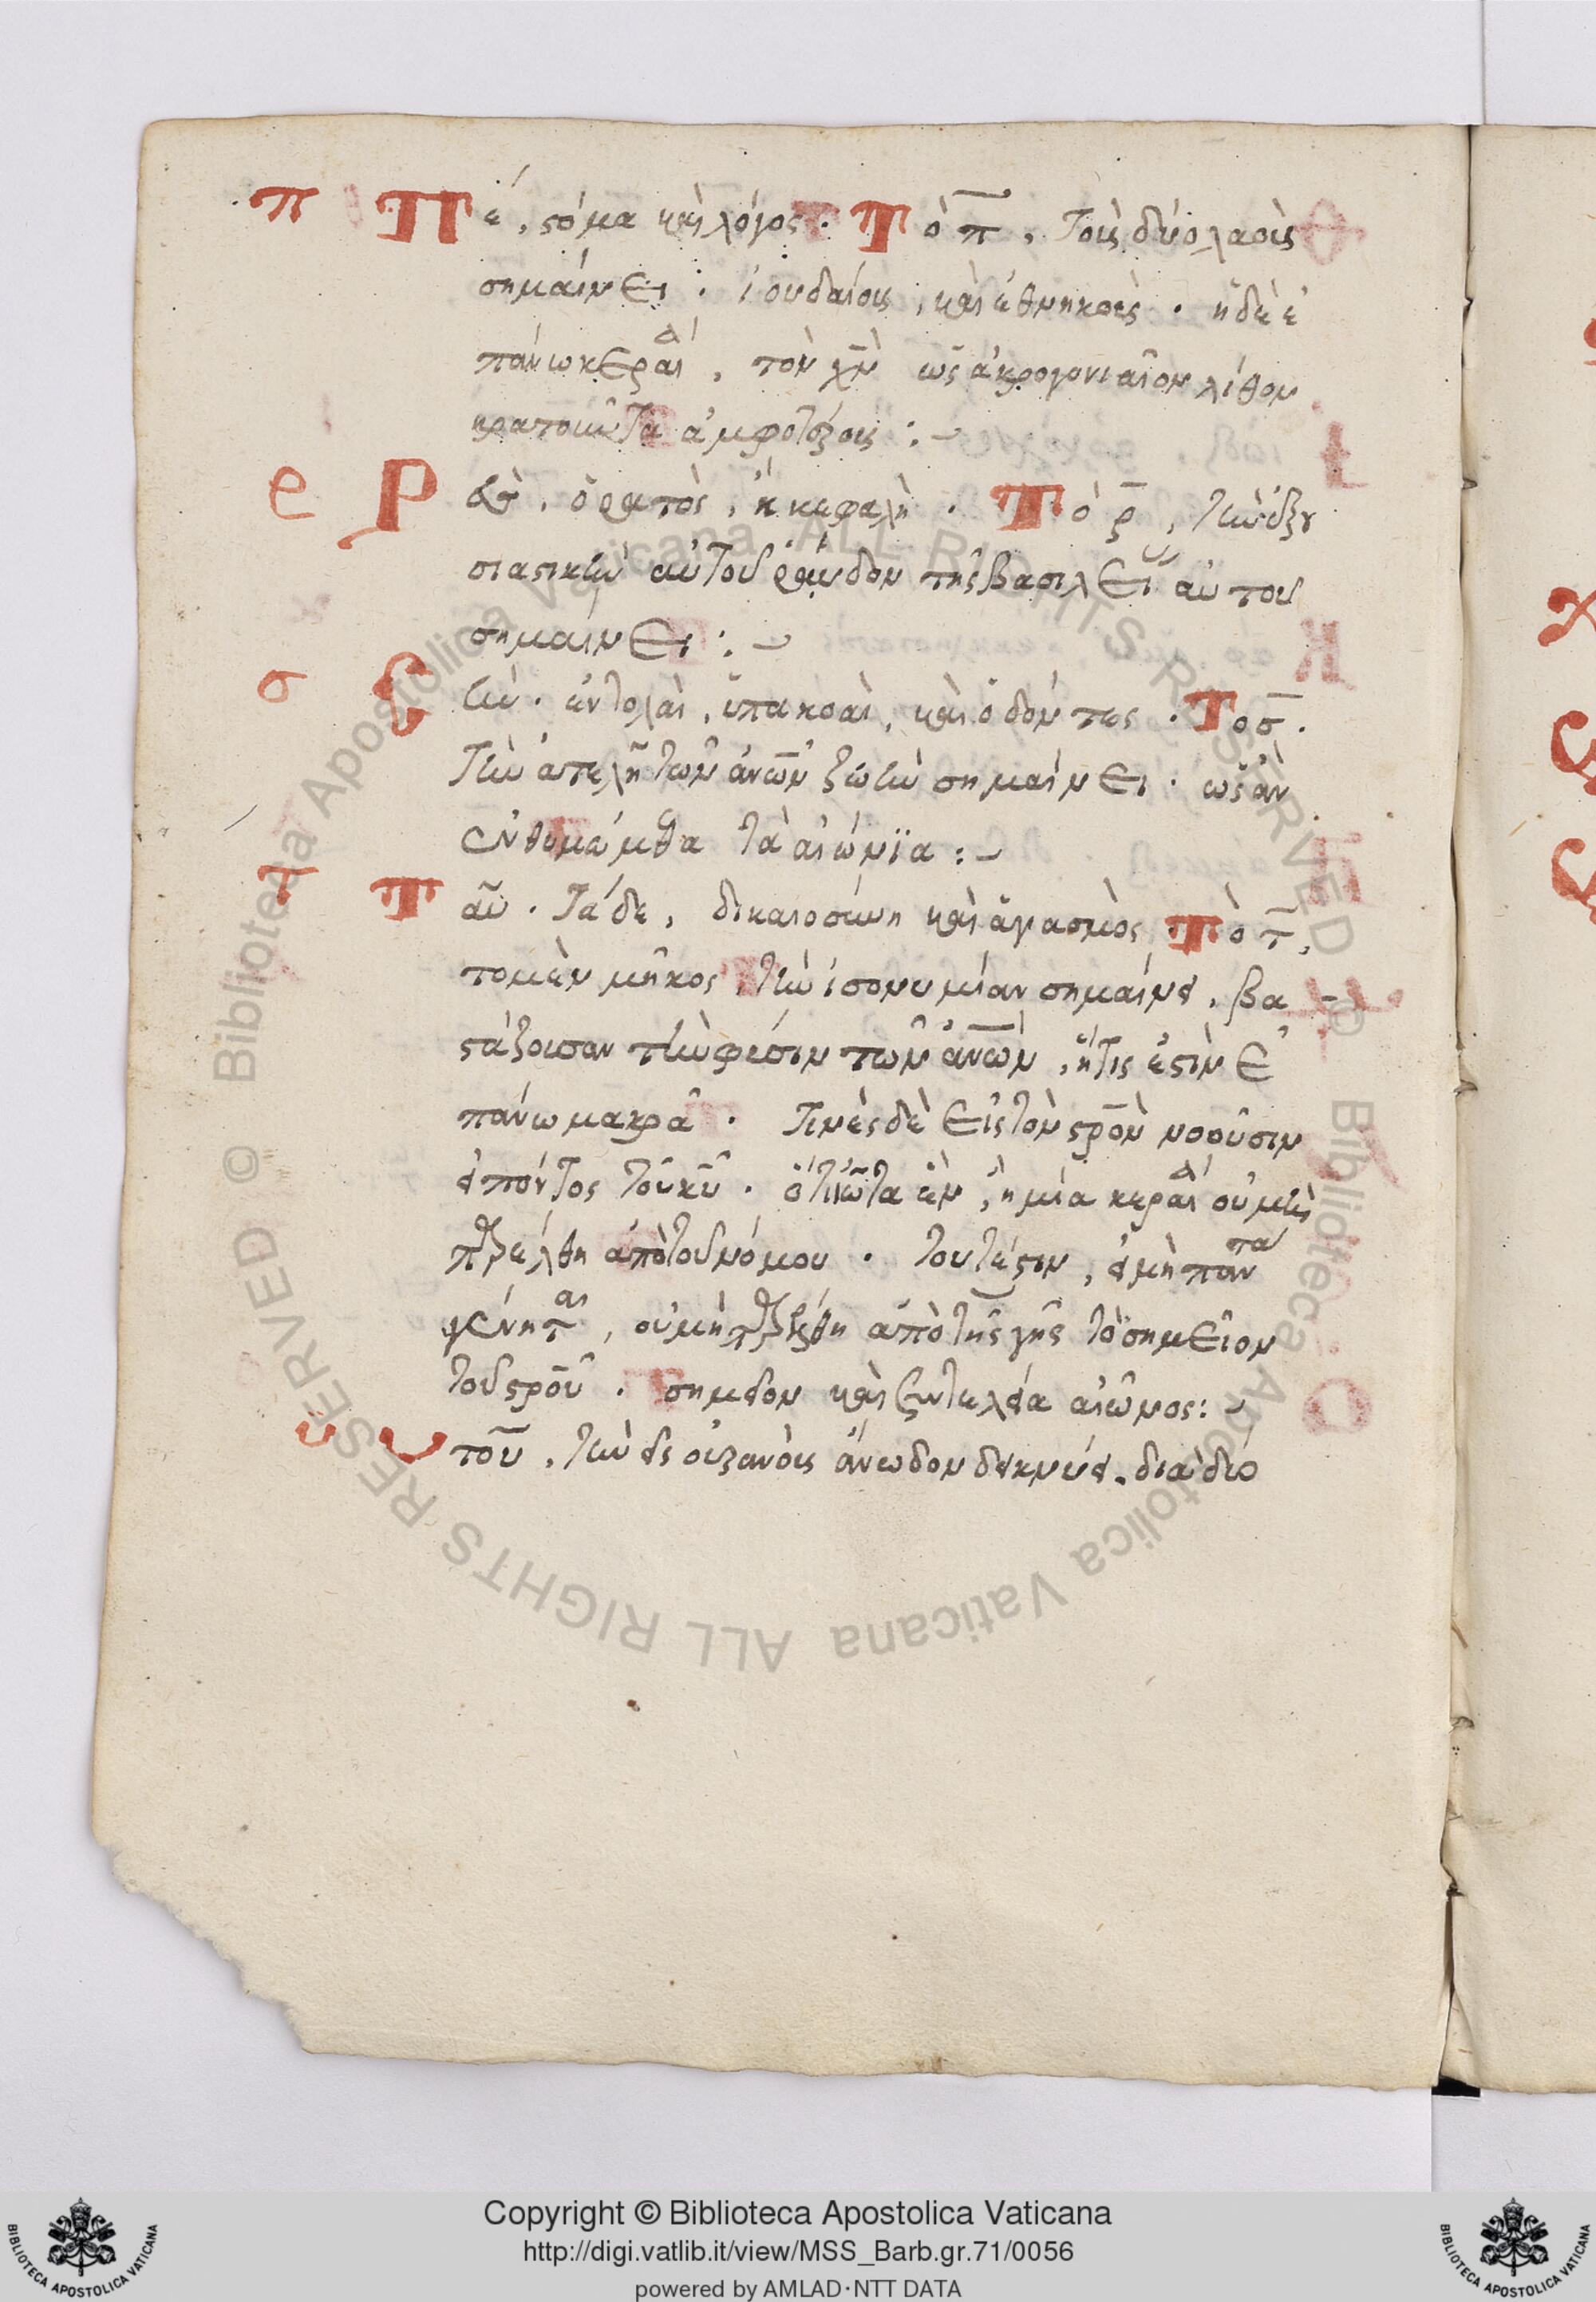 π Πέ, στόμα καὶ λόγος. Τὸ π̅, τοὺς δύο λαοὺς
σημαίνει: ἰουδαίους, καὶ ἐθνηκοὺς. ἡ δὲ ἐ
πάνω κεραία, τὸν χ̅ν ὡς ἀκρογονιαῖον λίθον
κρατοῦντα ἀμφοτέρους:~
ρ Ρῶ, ὁρατὸς, ἡ κεφαλὴ. Τὸ ρ̅, τὴν ἐξου
σιαστικὴν αὐτοῦ ῥάβδον τῆς βασιλείας αὐτοῦ
σημαίνει:~
σ Σὴν. ἐντολαὶ, ὑπακοαὶ, καὶ ὀδόντες. Το σ̅.
τὴν ἀτελῆ τῶν ἀν̅ων ζωὴν σημαίνει. ὡς ἂν
ἐνθυμώμεθα τὰ αἰώνϊα:~
τ Ταῦ. τάδε, δικαιοσύνη καὶ ἁγιασμὸς. Τὸ τ̅,
το μὲν μῆκος, τὴν ἰσονυμίαν σημαίνει, βα
στάζουσαν τὴν φύσιν τῶν ἀν̅ων, ἥτις ἐστὶν ἐ
πάνω μακρᾶ. τινὲς δὲ εἰς τὸν στρο̅ν νοοῦσιν
εἰπόντος τοῦ κ̅υ. ὅτι ἰῶτα ἓν, ἢ μία κεραία οὐ μὴ
παρέλθη ἀπὸ τοῦ νόμου. τουτέστιν, εἰ μὴ πάντα
γένηται, οὐ μὴ παρέλθη ἀπὸ τῆς γῆς τὸ σημεῖον
τοῦ στρο̅υ. σημεῖον καὶ συντελεία αἰῶνος:~
υ Υ τοῦ, τὴν εἰς οὐρανοὺς ἄνωδον δεικνύει. διὰ δύο
Copyright © Biblioteca Apostolica Vaticana
http://digi.vatlib.it/view/MSS_Barb.gr.71/0056
powered by AMLAD·NTT DATA